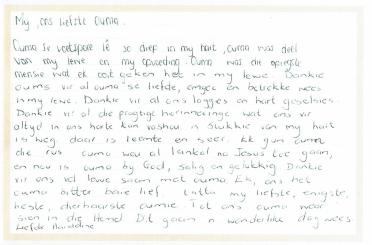 My, ons liefste Ouma.
Ouma se voetspore lê so diep in my hart, ouma was deel
van my lewe en my opvoeding. Ouma was die opregste
mensie wat ek ooit geken het in my lewe. Dankie
ouma vir al ouma se liefde, omgee en betrokke wees
in my lewe. Dankie vir al ons laggies en hart geselsies.
Dankie vir al die pragtige herinneringe wat ons vir
altyd in ons harte kan vashou. 'n Stukkie van my hart
is weg, daar is leemte en seer. Ek gun ouma
die rus ouma wou al lankal na Jesus toe gaan,
en nou is ouma by God, salig en gelukkig. Dankie
vir ons vol lewe saam met ouma. Ek, ons het
ouma bitter baie lief. Tatta my liefste, enigste,
beste, dierbaarste oumie. Tot ons ouma weer
sien in die Hemel. Dit gaan 'n wonderlike dag wees.
Liefde